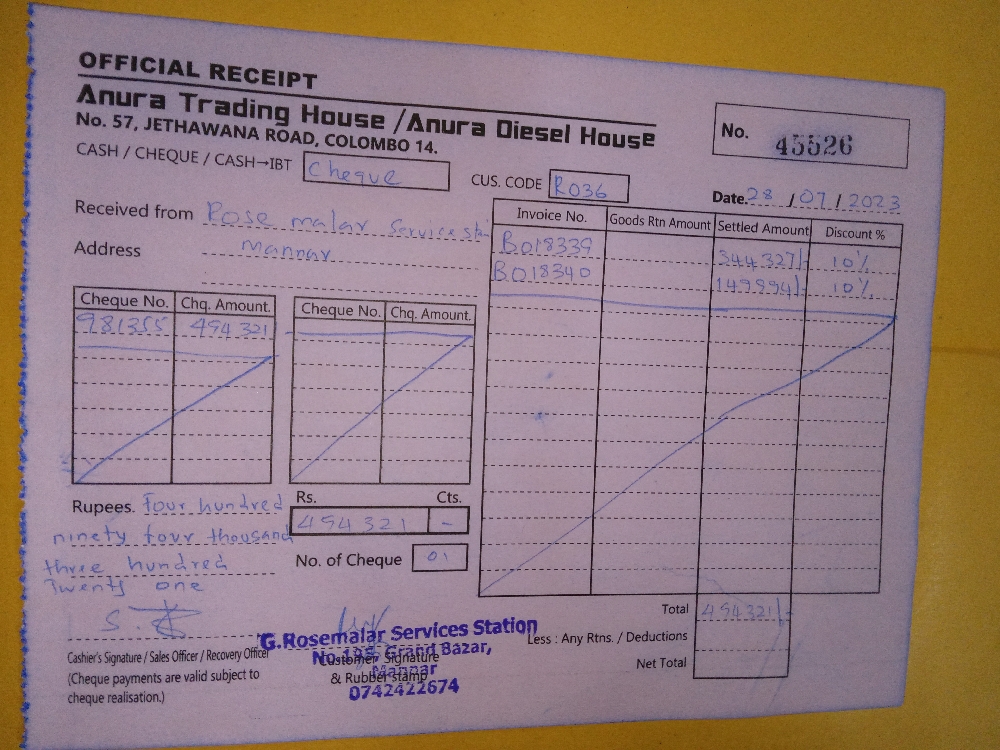 OFFICIAL RECEIPT
Anura Trading House / Anura Diesel House
No. 57, JETHAWANA ROAD, COLOMBO 14.
No. 45526
CASH / CHEQUE / CASH→IBT Cheque
CUS. CODE R036
Date. 28 / 07 / 2023
Received from Rose malar Service stn
Address Mannar
Invoice No. Goods Rtn Amount Settled Amount Discount %
B018339 344327/- 10%
B018340 149994/- 10%
Cheque No. Chq. Amount. Cheque No. Chq. Amount.
981355 494 321
Rupees. Four hundred
ninety four thousand
three hundred
Twenty one
Rs. Cts.
494321 -
No. of Cheque 01
Total 494321/-
Less : Any Rtns. / Deductions
Net Total
Cashier's Signature / Sales Officer / Recovery Officer
(Cheque payments are valid subject to
cheque realisation.)
Customer Signature
& Rubber stamp
G.Rosemalar Services Station
Grand Bazar,
Mannar
0742422674